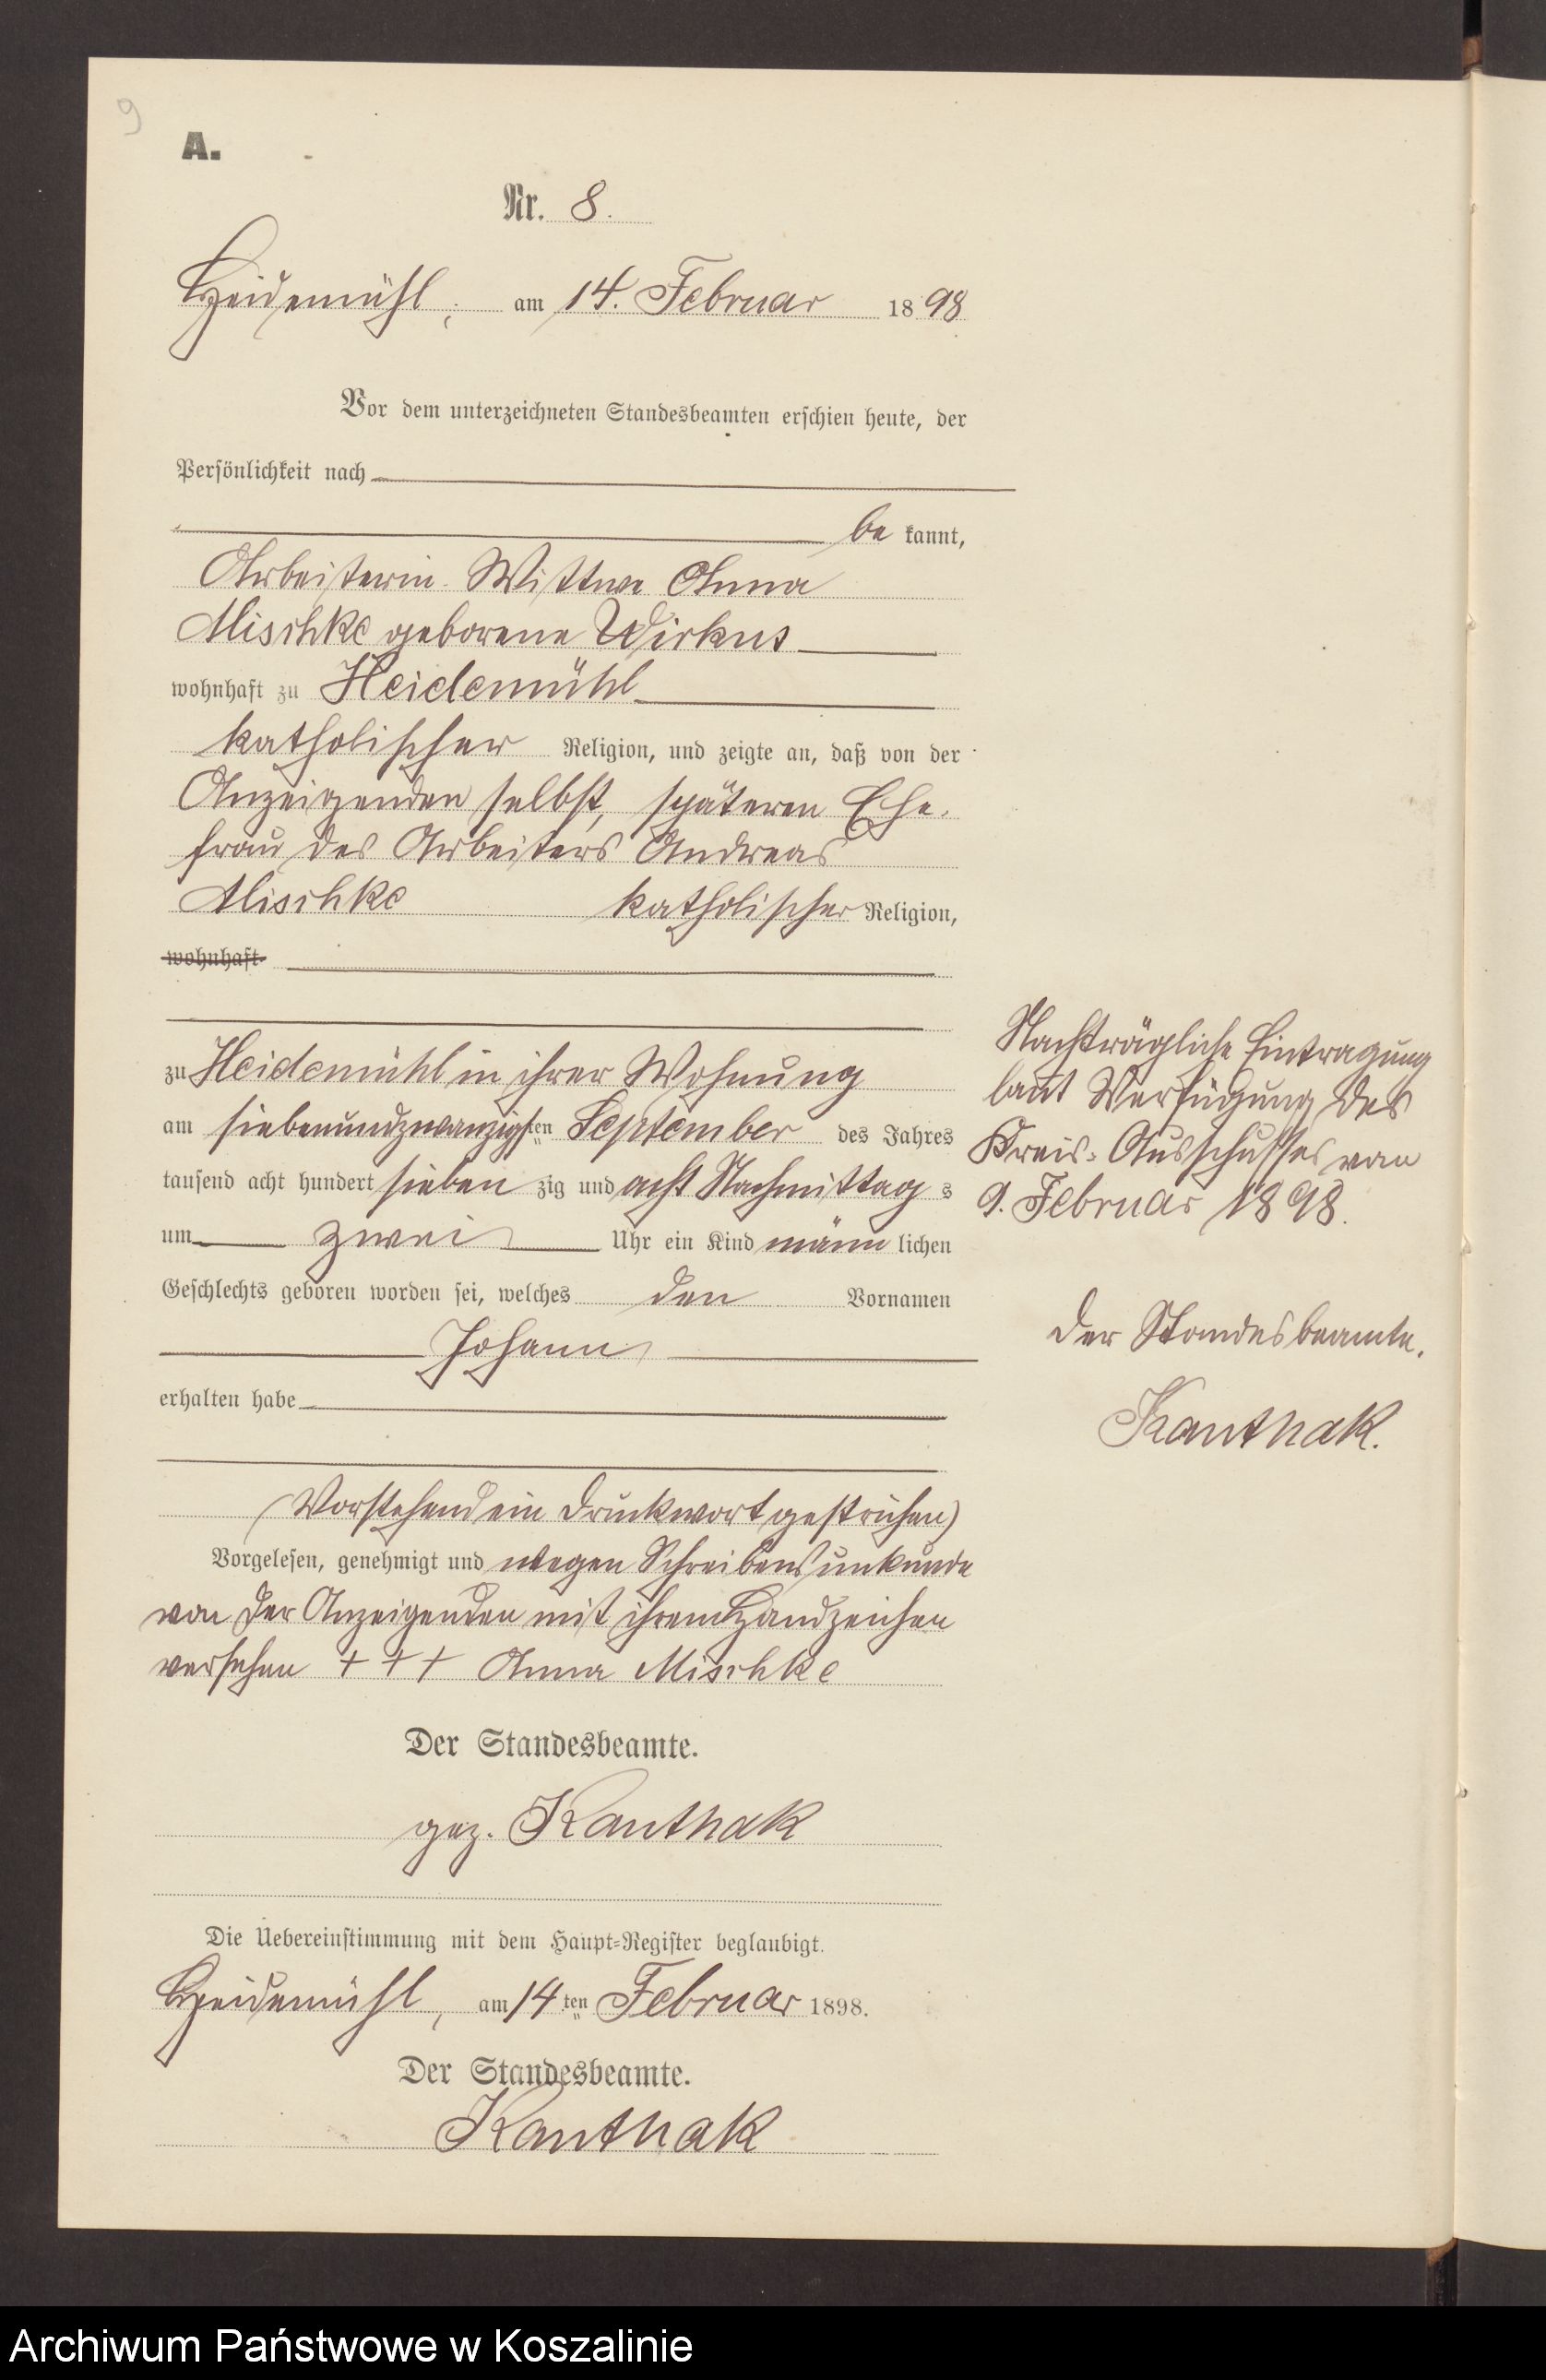 9
A.
Nr. 8.
Heidemühl, am 14. Februar 1898
Vor dem unterzeichneten Standesbeamten erschien heute, der
Persönlichkeit nach
be kannt,
Arbeiterin Wittwe Anna
Mischke geborene Wirkus
wohnhaft zu Heidemühl
katholischer Religion, und zeigte an, daß von der
Anzeigenden selbst, späteren Ehe-
frau des Arbeiters Andreas
Mischke katholischer Religion,
wohnhaft
zu Heidemühl in ihrer Wohnung
am siebenundzwanzigsten September des Jahres
tausend acht hundert sieben zig und acht Nachmittag s
um zwei Uhr ein Kind männ lichen
Geschlechts geboren worden sei, welches den Vornamen
Johann
erhalten habe
(Vorstehend ein Druckwort gestrichen)
Vorgelesen, genehmigt und wegen Schreibensunkunde
von der Anzeigenden mit ihrem Handzeichen
versehen + + + Anna Mischke
Der Standesbeamte.
gez. Kanthak
Die Uebereinstimmung mit dem Haupt-Register beglaubigt.
Heidemühl, am 14 ten Februar 1898.
Der Standesbeamte.
Kanthak
Nachträgliche Eintragung
laut Verfügung des
Kreis-Ausschusses von
9. Februar 1898.
Der Standesbeamte.
Kanthak.
Archiwum Państwowe w Koszalinie